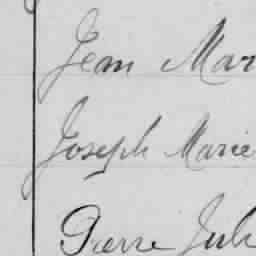 Jean Mar
Joseph Marie
Pierre Jul